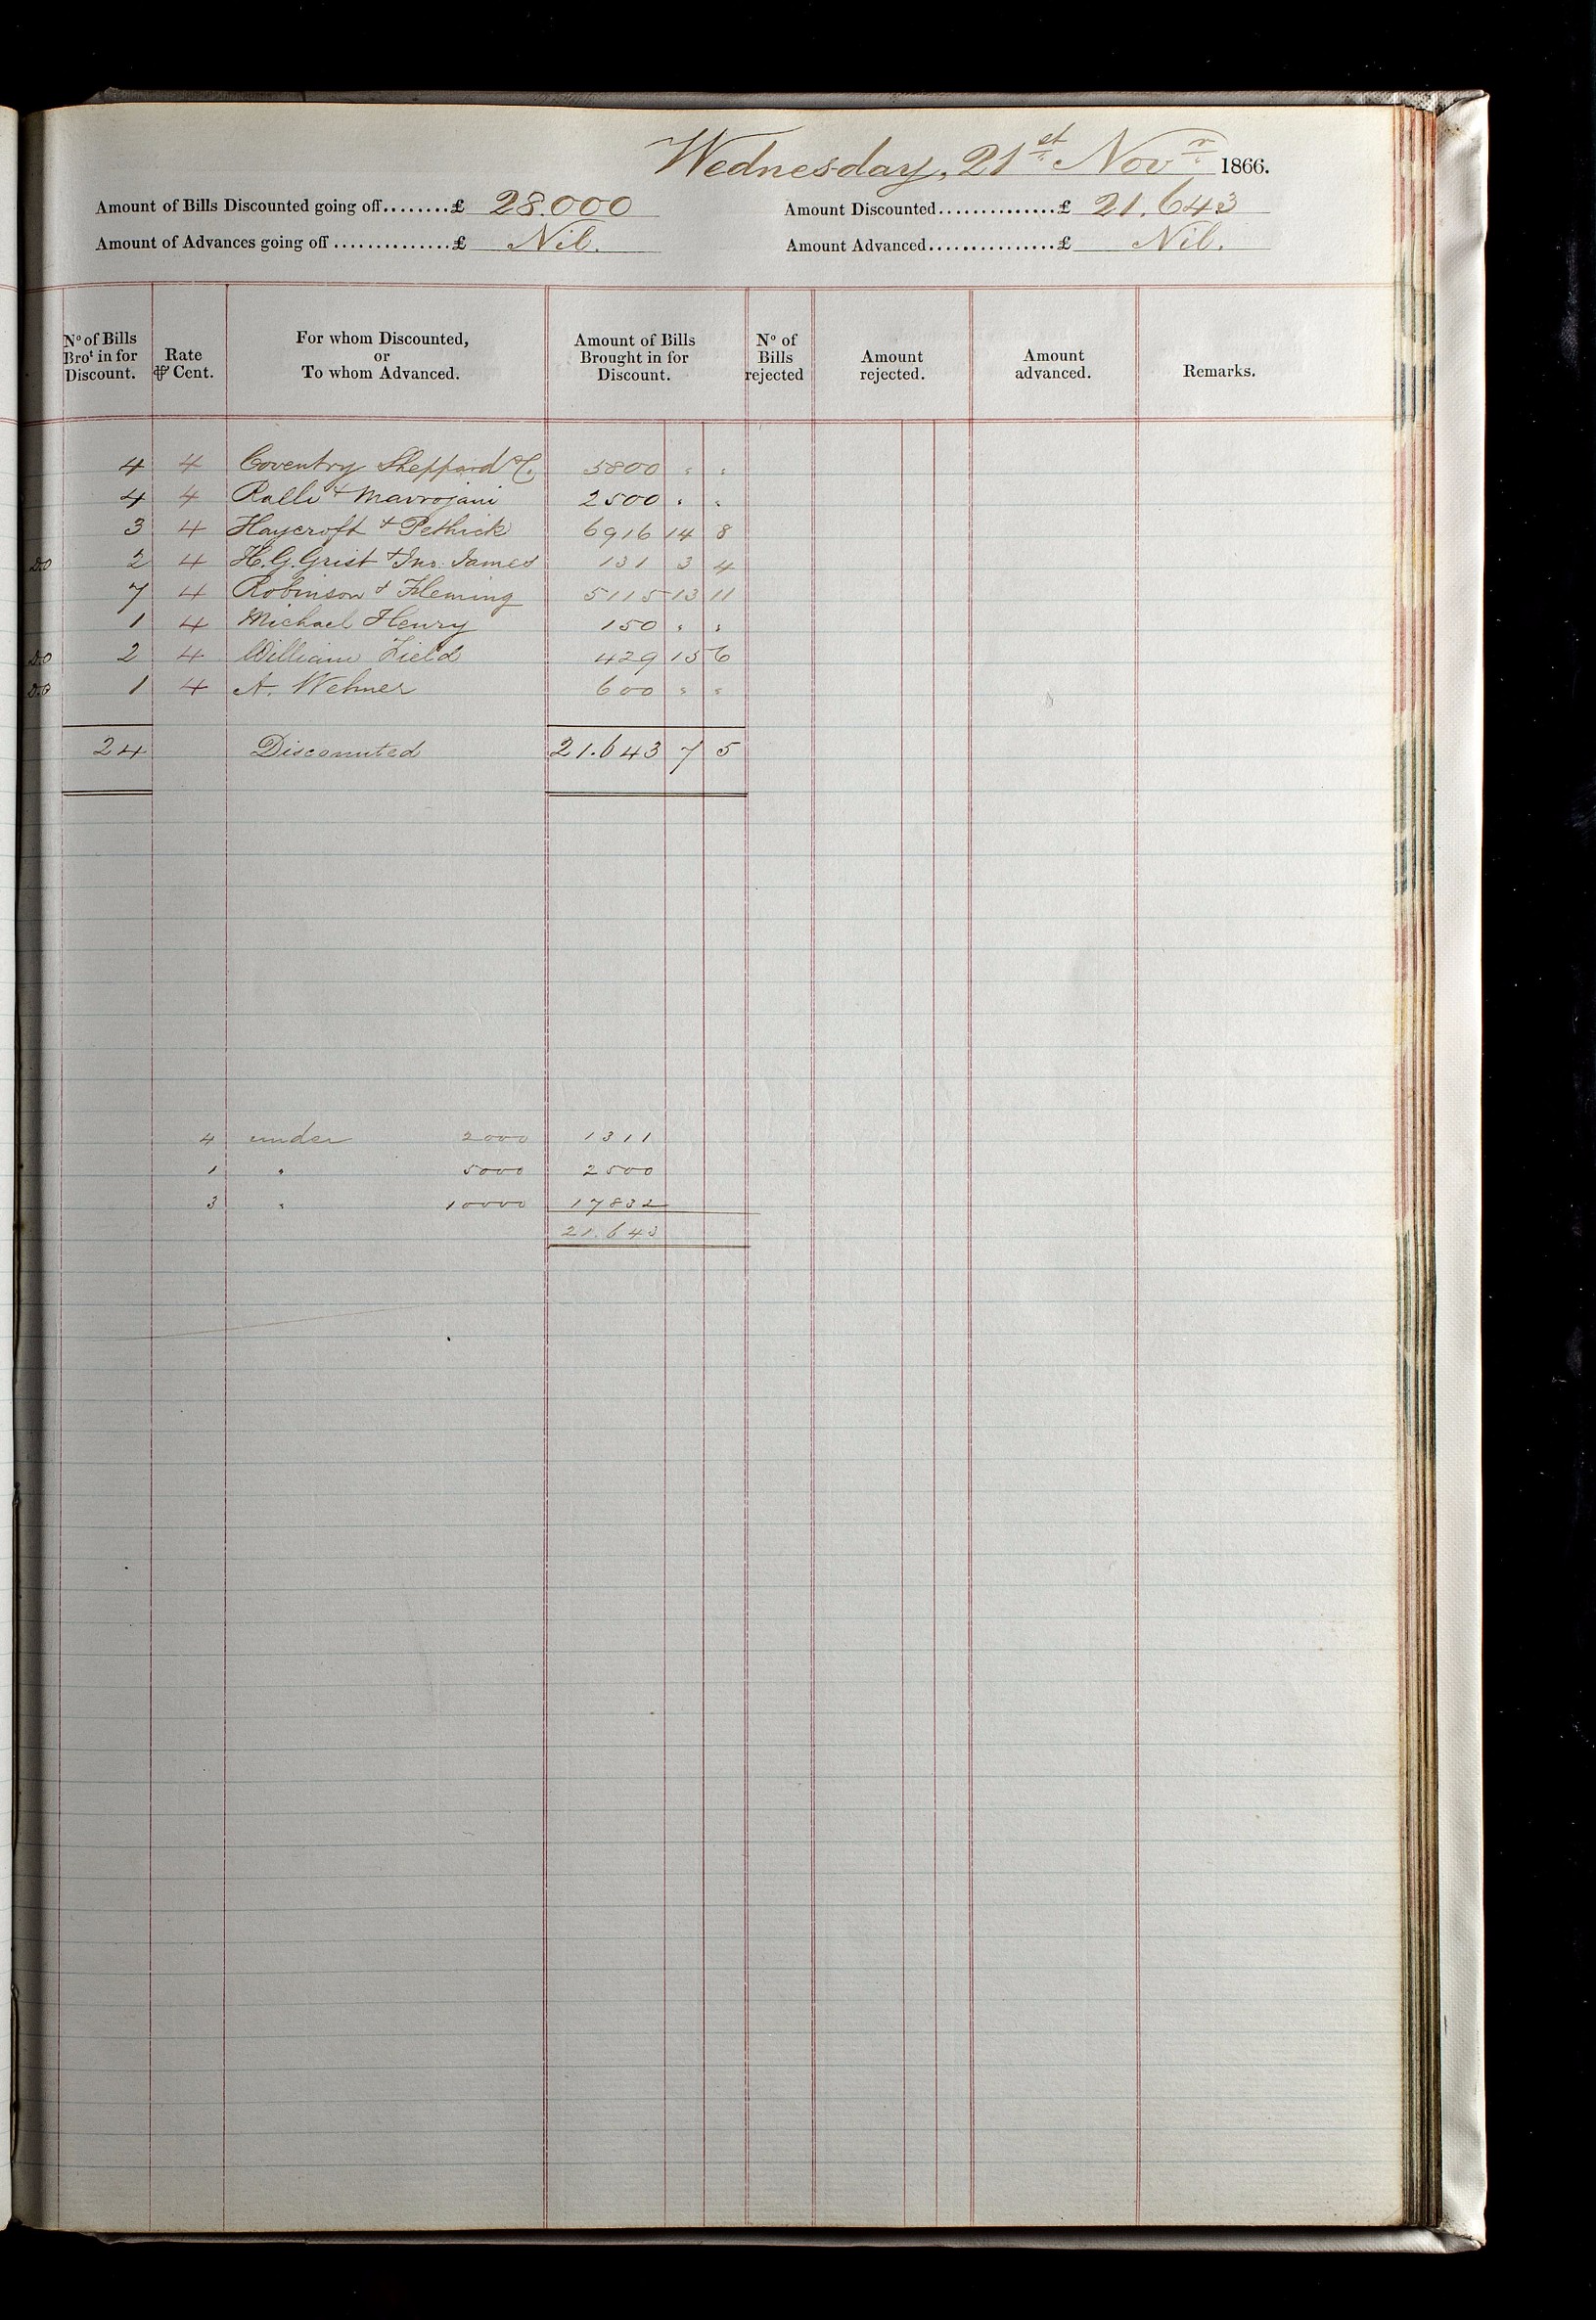 Wednesday, 21st Novr 1866.
Amount of Bills Discounted going off........£ 28.000 Amount Discounted..............£ 21.643
Amount of Advances going off..............£ Nil. Amount Advanced...............£ Nil.
No of Bills Brot in for Discount. Rate ⅌ Cent. For whom Discounted, or To whom Advanced. Amount of Bills Brought in for Discount. No of Bills rejected Amount rejected. Amount advanced. Remarks.
4 4 Coventry Sheppard & C. 5800 " "
4 4 Ralli & Mavrojani 2500 " "
3 4 Haycroft & Pethick 6916 14 8
Do 2 4 H. G. Grist & Jno. James 131 3 4
7 4 Robinson & Fleming 5115 13 11
1 4 Michael Henry 150 " "
Do 2 4 William Field 429 15 6
Do 1 4 A. Wehner 600 " "
24 Discounted 21.643 7 5
4 under 2000 1311
1 " 5000 2500
3 " 10000 17832
21.643